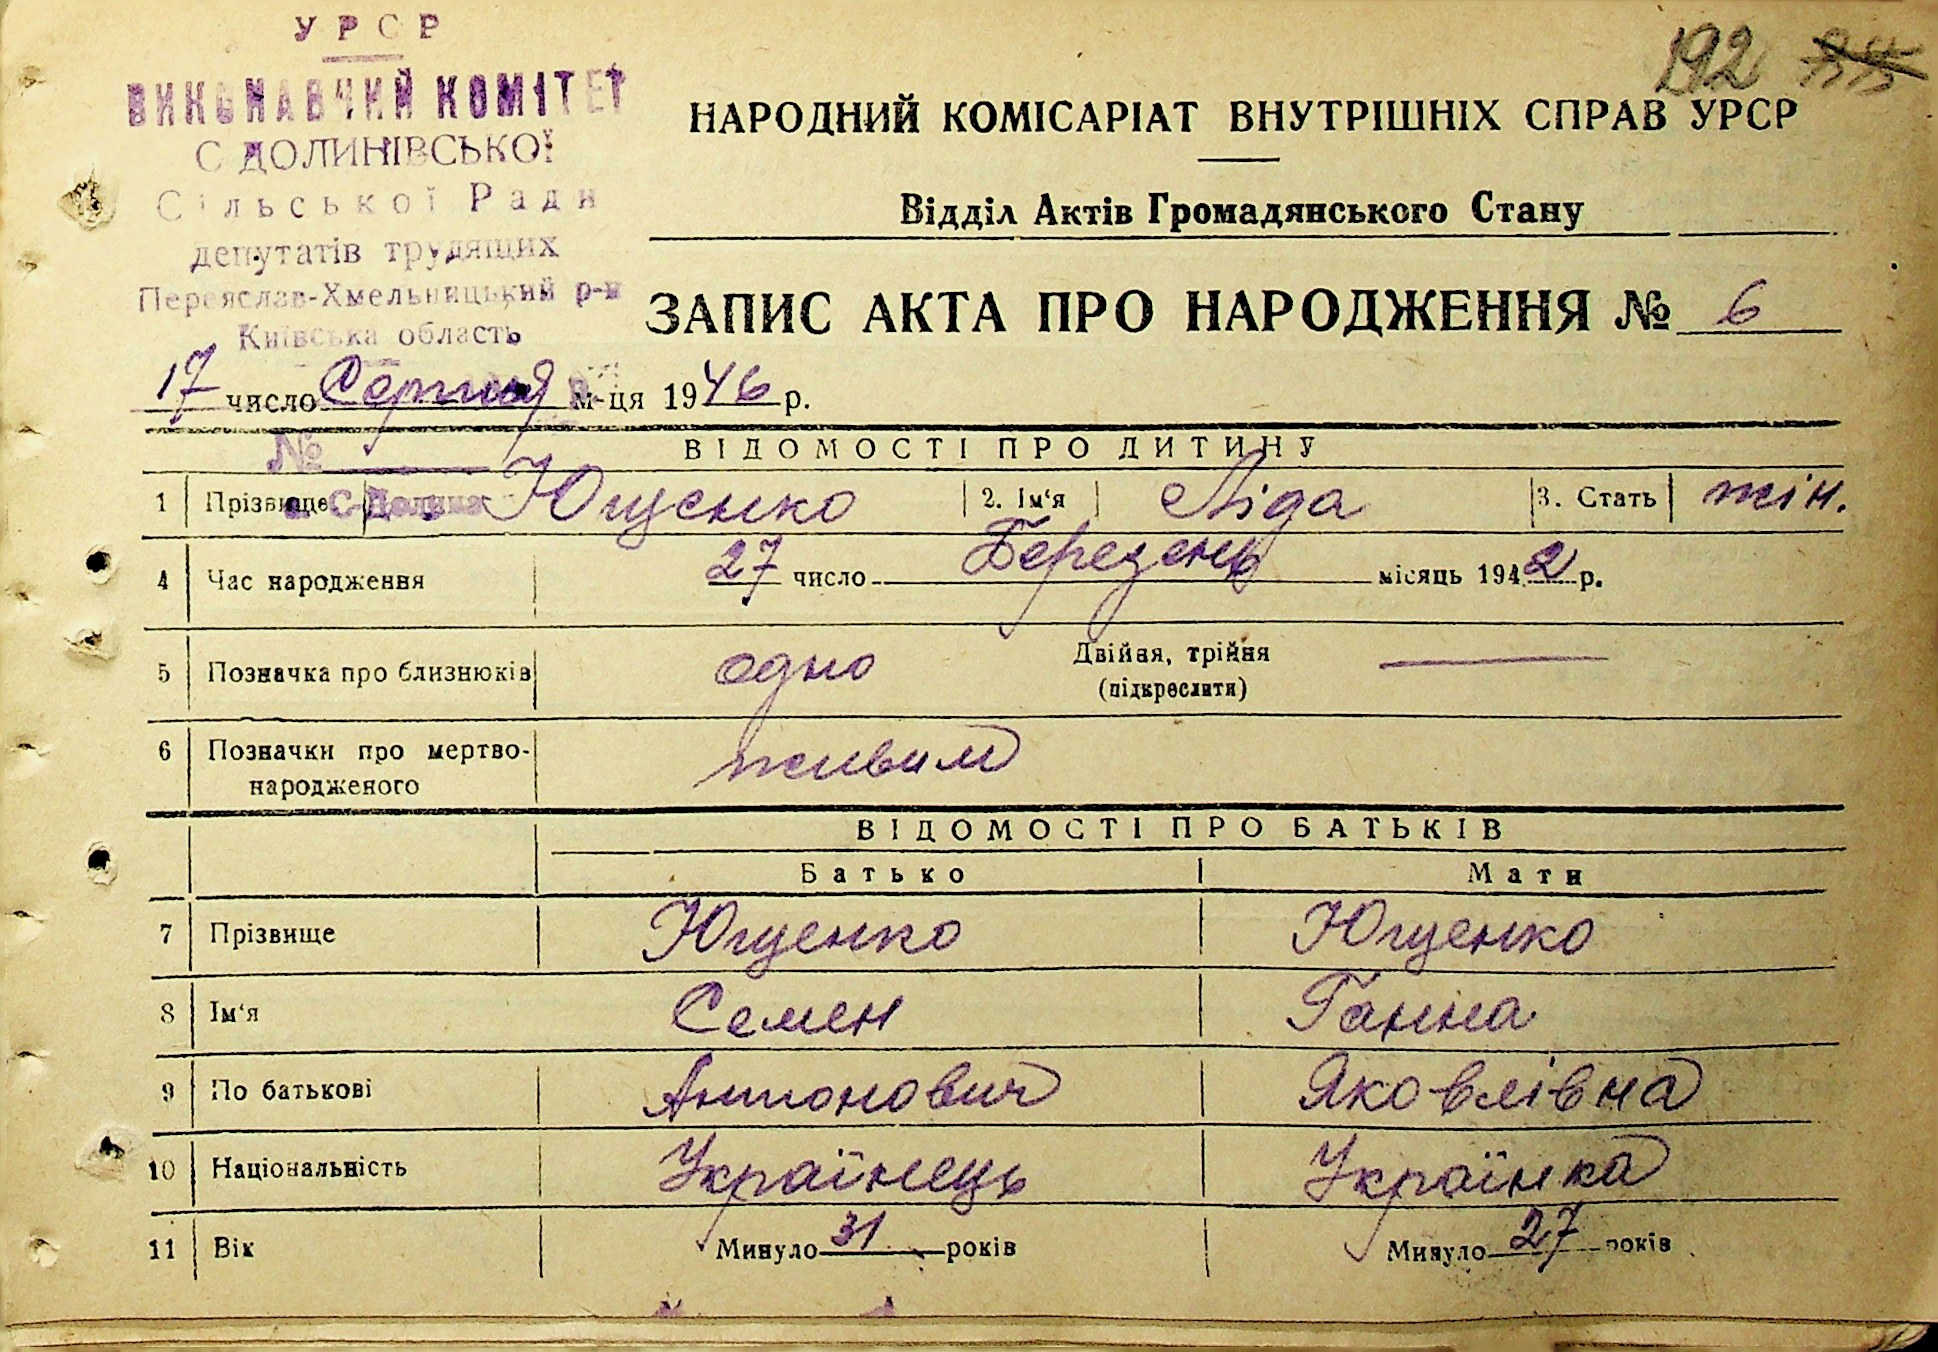 УРСР
ВИКОНАВЧИЙ КОМІТЕТ
С ДОЛИНІВСЬКОЇ
Сільської Ради
депутатів трудящих
Переяслав-Хмельницький р-н
Київська область
192
НАРОДНИЙ КОМІСАРІАТ ВНУТРІШНІХ СПРАВ УРСР
Відділ Актів Громадянського Стану
ЗАПИС АКТА ПРО НАРОДЖЕННЯ № 6
17 число Серпня м-ця 1946 р.
№
ВІДОМОСТІ ПРО ДИТИНУ
1 Прізвище Ющенко 2. Ім'я Ліда 3. Стать жін.
с. С-Долина
4 Час народження 27 число Березень місяць 1942 р.
5 Позначка про близнюків одно Двійня, трійня
(підкреслити)
6 Позначки про мертво-
народженого живим
ВІДОМОСТІ ПРО БАТЬКІВ
Батько Мати
7 Прізвище Ющенко Ющенко
8 Ім'я Семен Ганна
9 По батькові Антонович Яковлівна
10 Національність Українець Українка
11 Вік Минуло 31 років Минуло 27 років